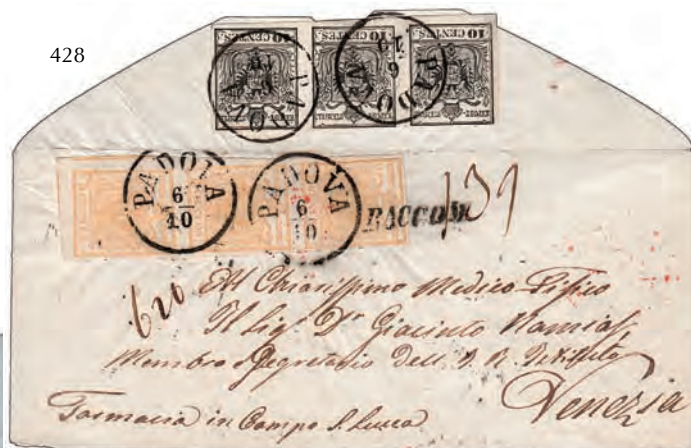 428
10 CENTES. 10 CENTES. 10 CENTES.
PADOVA PADOVA
6 10
PADOVA PADOVA
6/10 6/10
RACCOM
131
620
Al Chiarissimo Medico-Fisico
Il Sig. Dr Giacinto Namias
Membro e Segretario dell' I. R. Istituto
Venezia
Farmacia in Campo S. Lucca